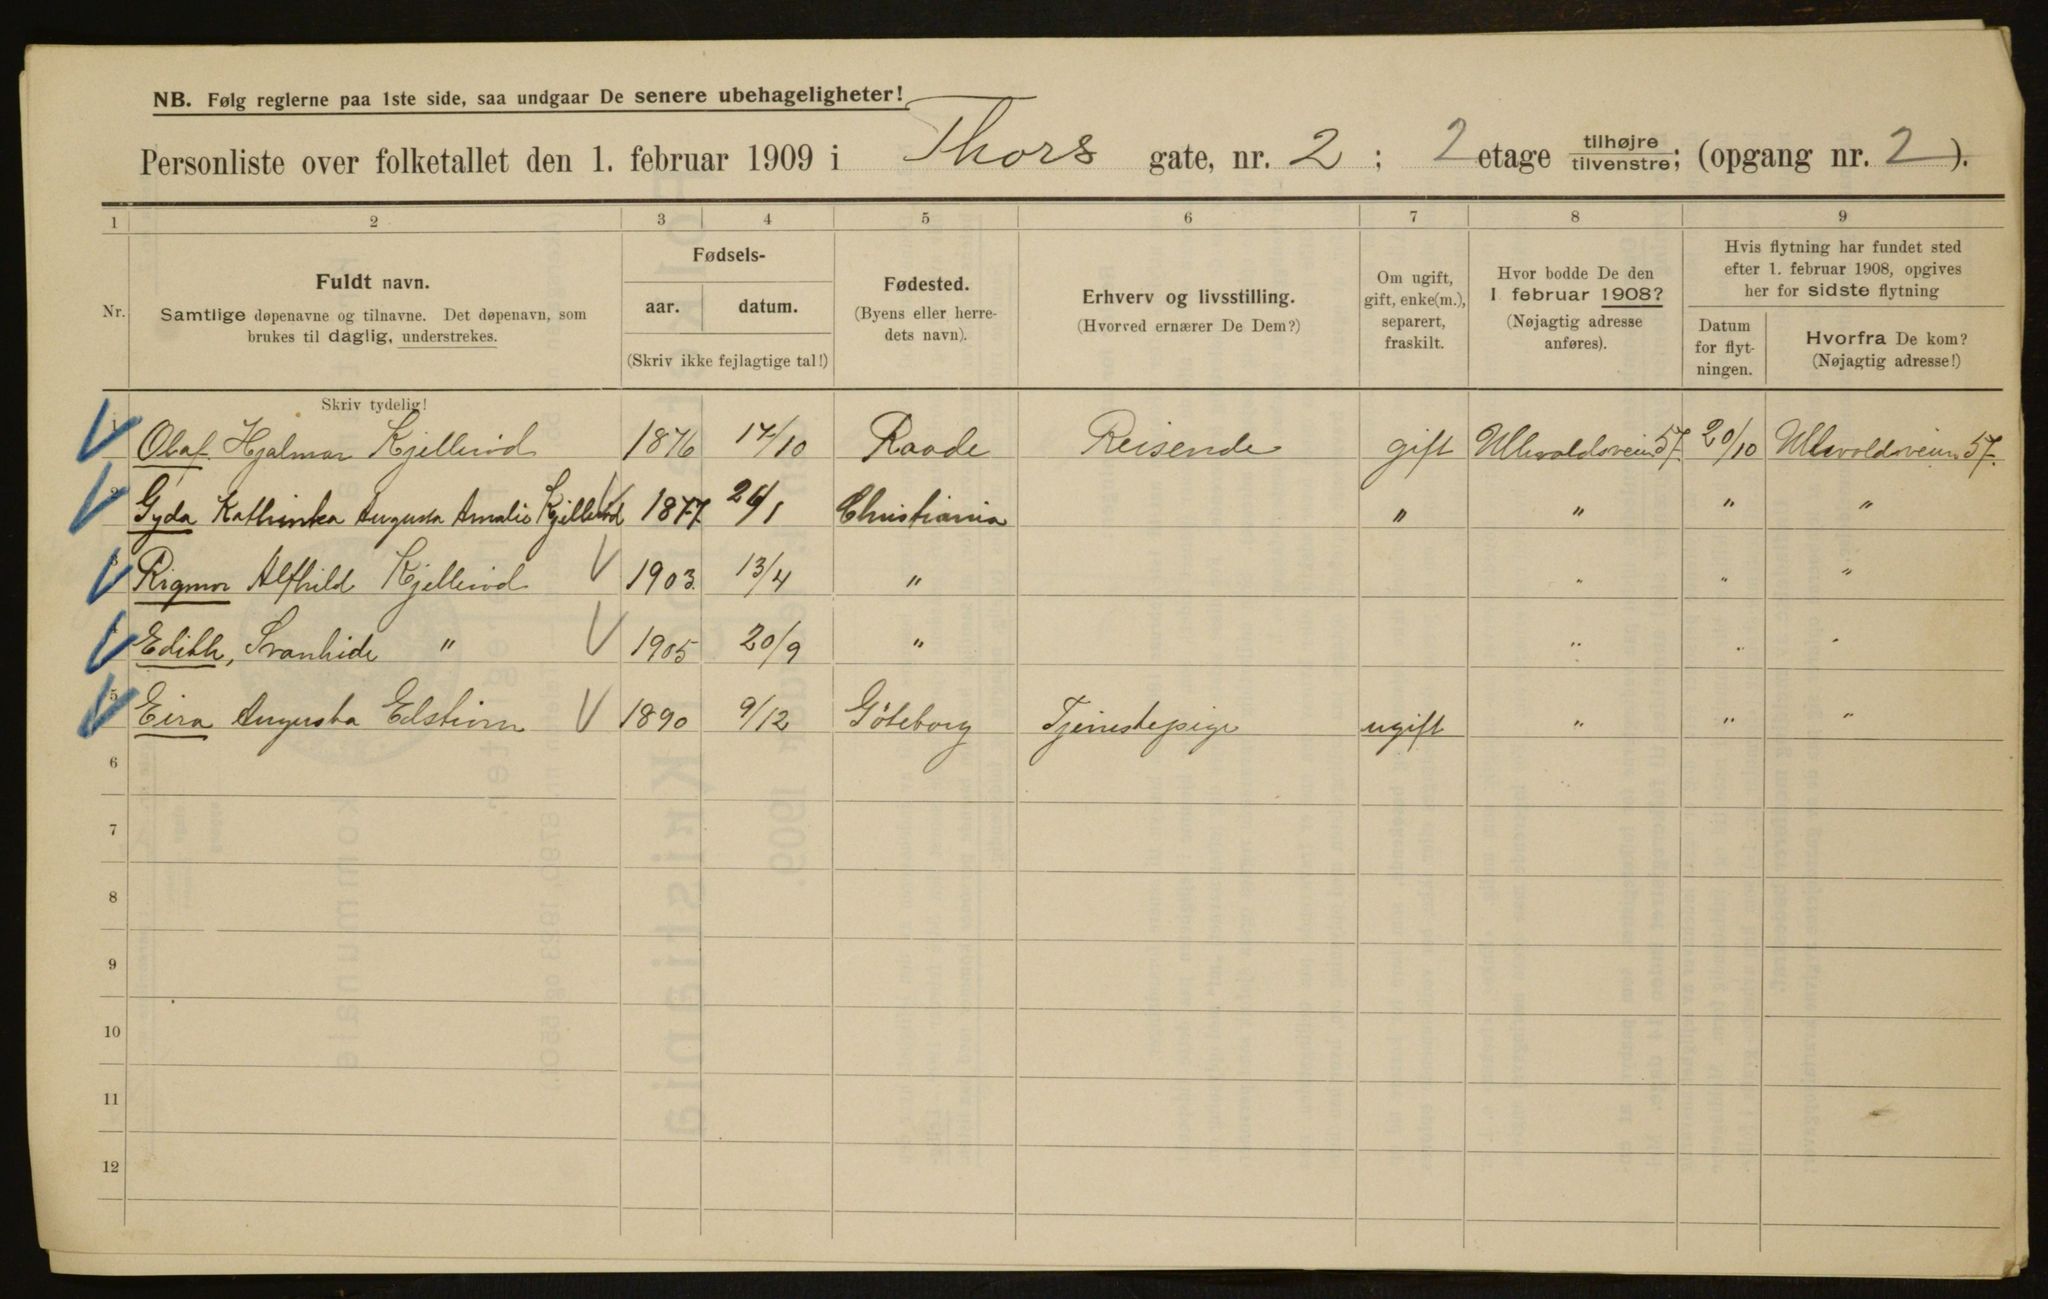 NB. Følg reglerne paa 1ste side, saa undgaar De senere ubehageligheter!
Personliste over folketallet den 1. februar 1909 i Thors gate, nr. 2 ; 2 etage tilhøjre tilvenstre; (opgang nr. 2).
1 2 3 4 5 6 7 8 9
Nr.
Fuldt navn.
Samtlige døpenavne og tilnavne. Det døpenavn, som
brukes til daglig, understrekes.
Fødsels-
aar. datum.
(Skriv ikke fejlagtige tal!)
Fødested.
(Byens eller herre-
dets navn).
Erhverv og livsstilling.
(Hvorved ernærer De Dem?)
Om ugift,
gift, enke(m.),
separert,
fraskilt.
Hvor bodde De den
1 februar 1908?
(Nøjagtig adresse
anføres).
Hvis flytning har fundet sted
efter 1. februar 1908, opgives
her for sidste flytning
Datum
for flyt-
ningen.
Hvorfra De kom?
(Nøjagtig adresse!)
Skriv tydelig!
1 Olaf Hjalmar Kjellerød 1876 17/10 Raade Reisende gift Ullevoldsveien 57. 20/10 Ullevoldsveien 57.
2 Gyda Kathinka Augusta Amalie Kjellerød 1877 26/1 Christiania " " " "
3 Rigmor Alfhild Kjellerød 1903. 13/4 " " " "
4 Edith, Svanhide " 1905 20/9 " " " "
5 Eira Augusta Edstrøm 1890 9/12 Göteborg Tjenestepige ugift " " "
6
7
8
9
10
11
12